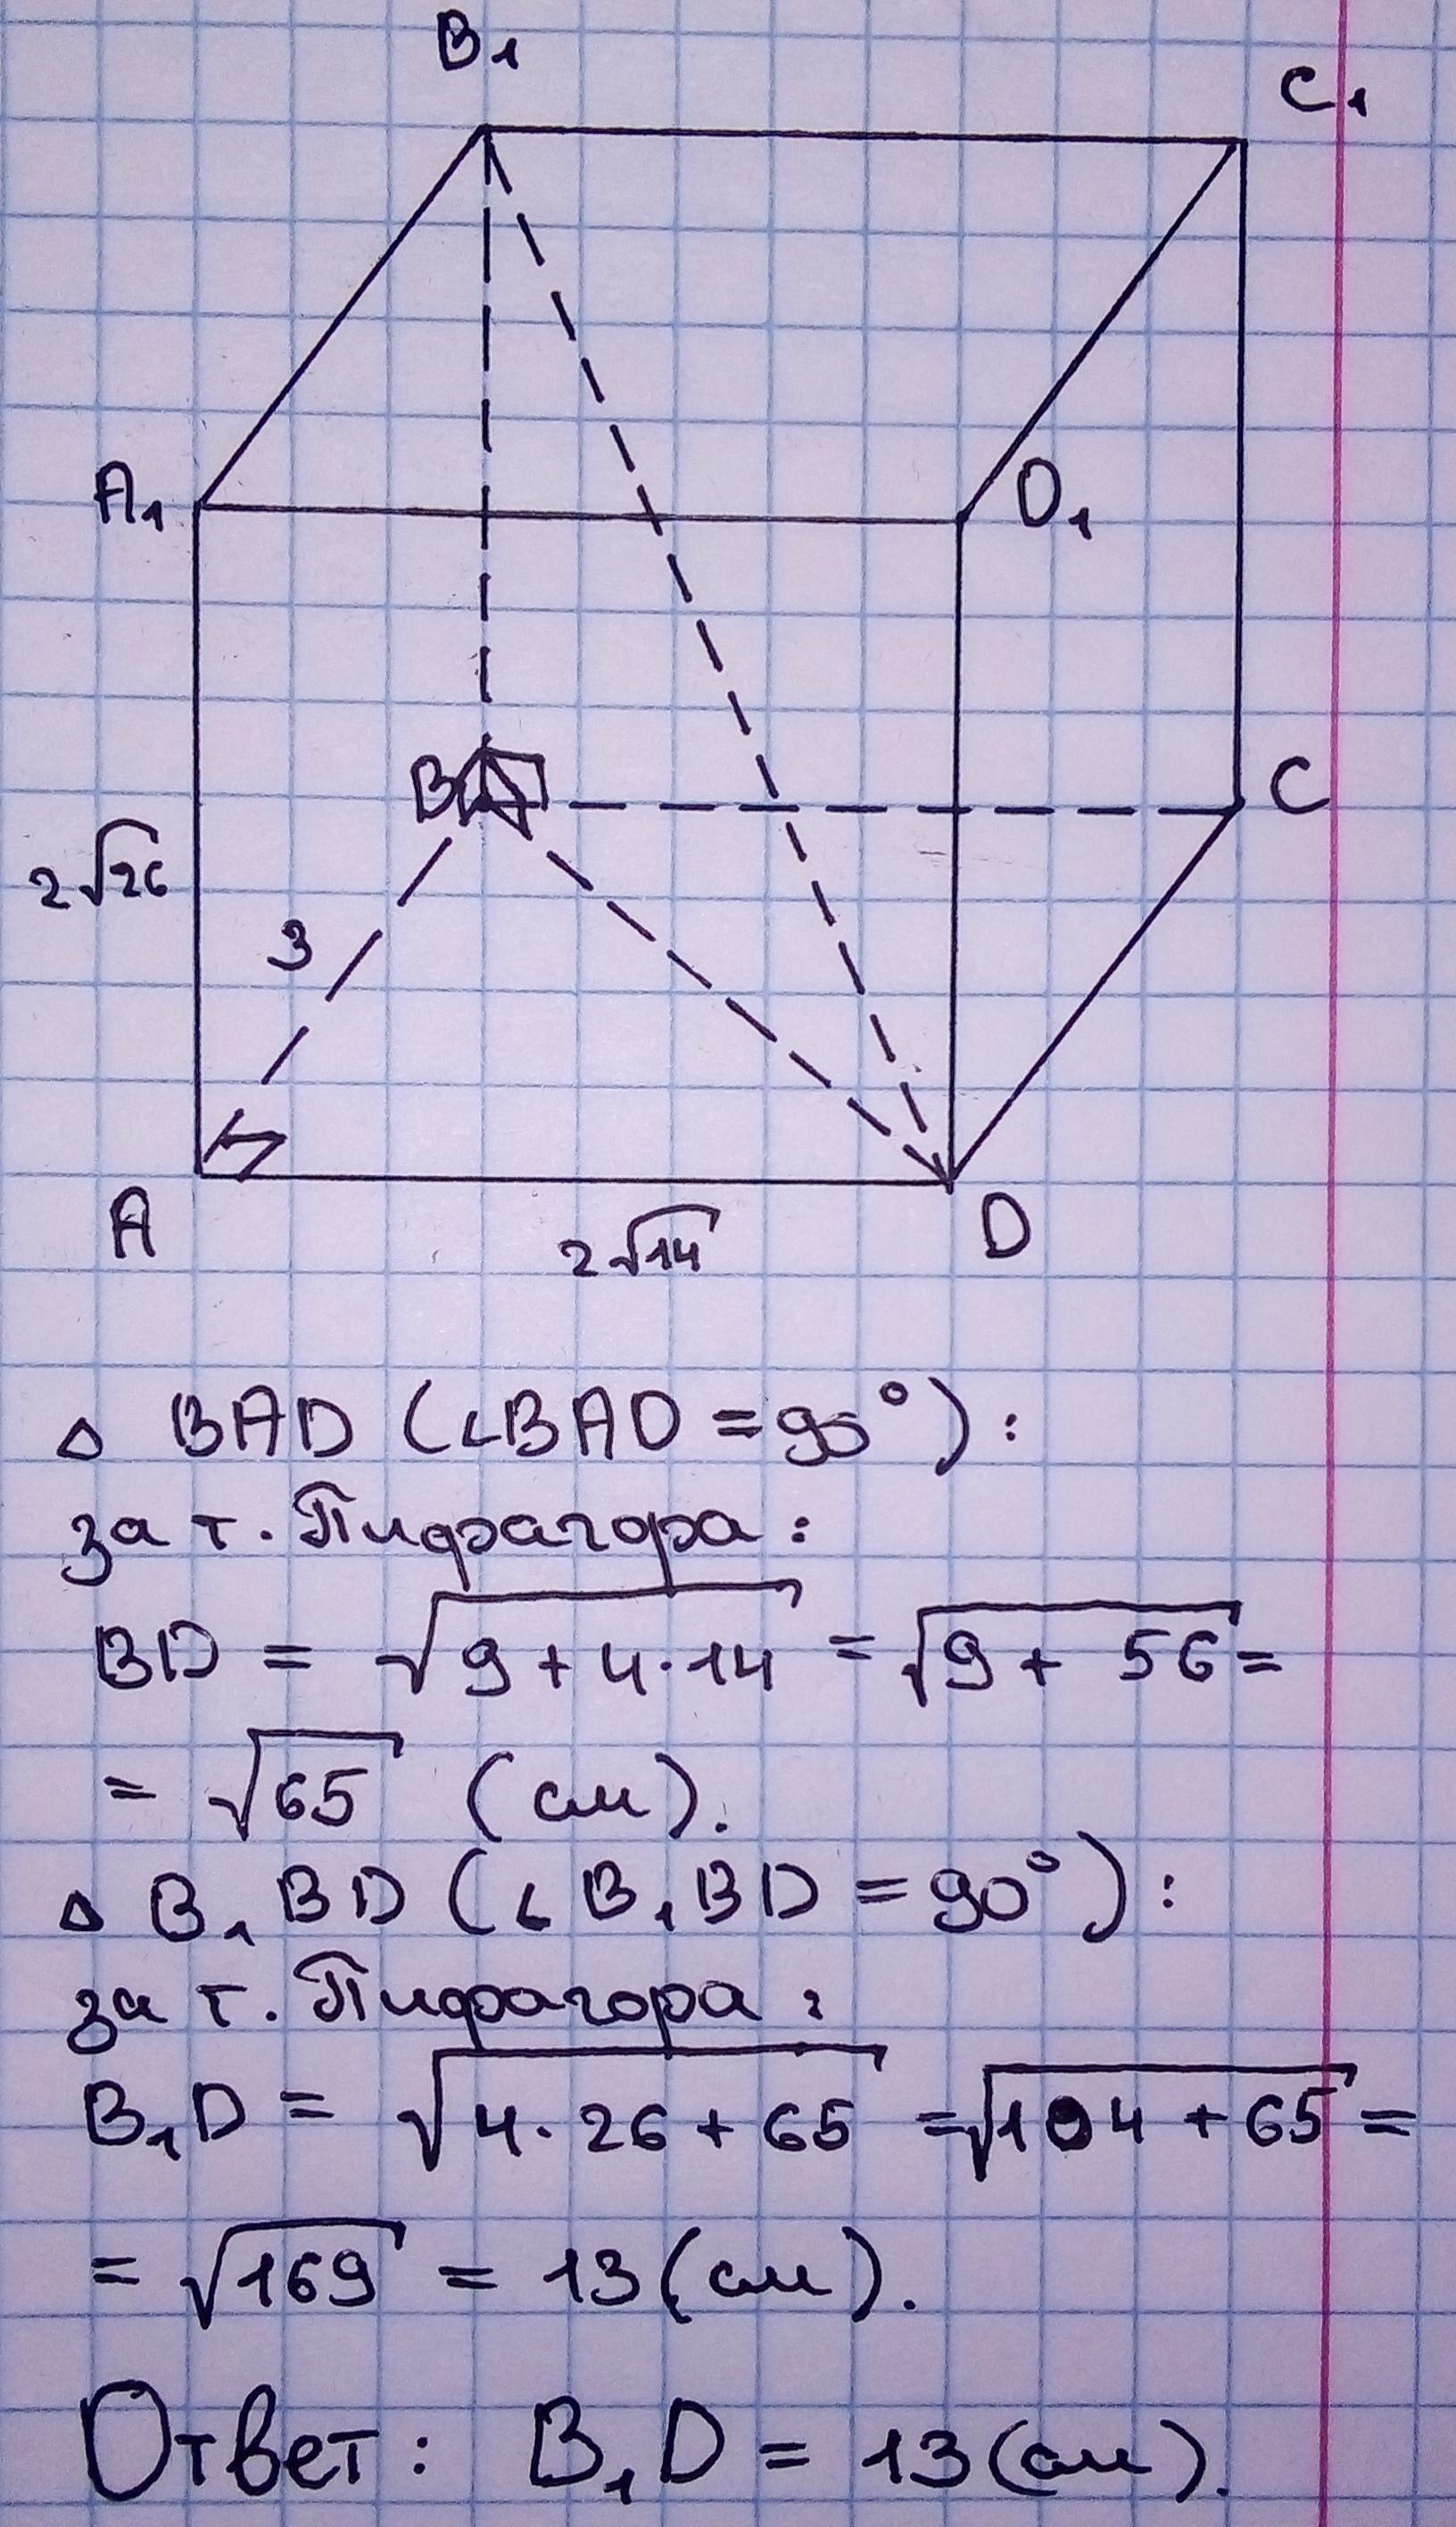 B₁
C₁
A₁
D₁
B
C
2√26
3
A
D
2√14
△ BAD (∠BAD = 90°):
за т. Пифагора:
BD = √(9 + 4·14) = √(9 + 56) =
= √65 (см).
△ B₁BD (∠B₁BD = 90°):
за т. Пифагора:
B₁D = √(4·26 + 65) = √(104 + 65) =
= √169 = 13 (см).
Ответ: B₁D = 13 (см).